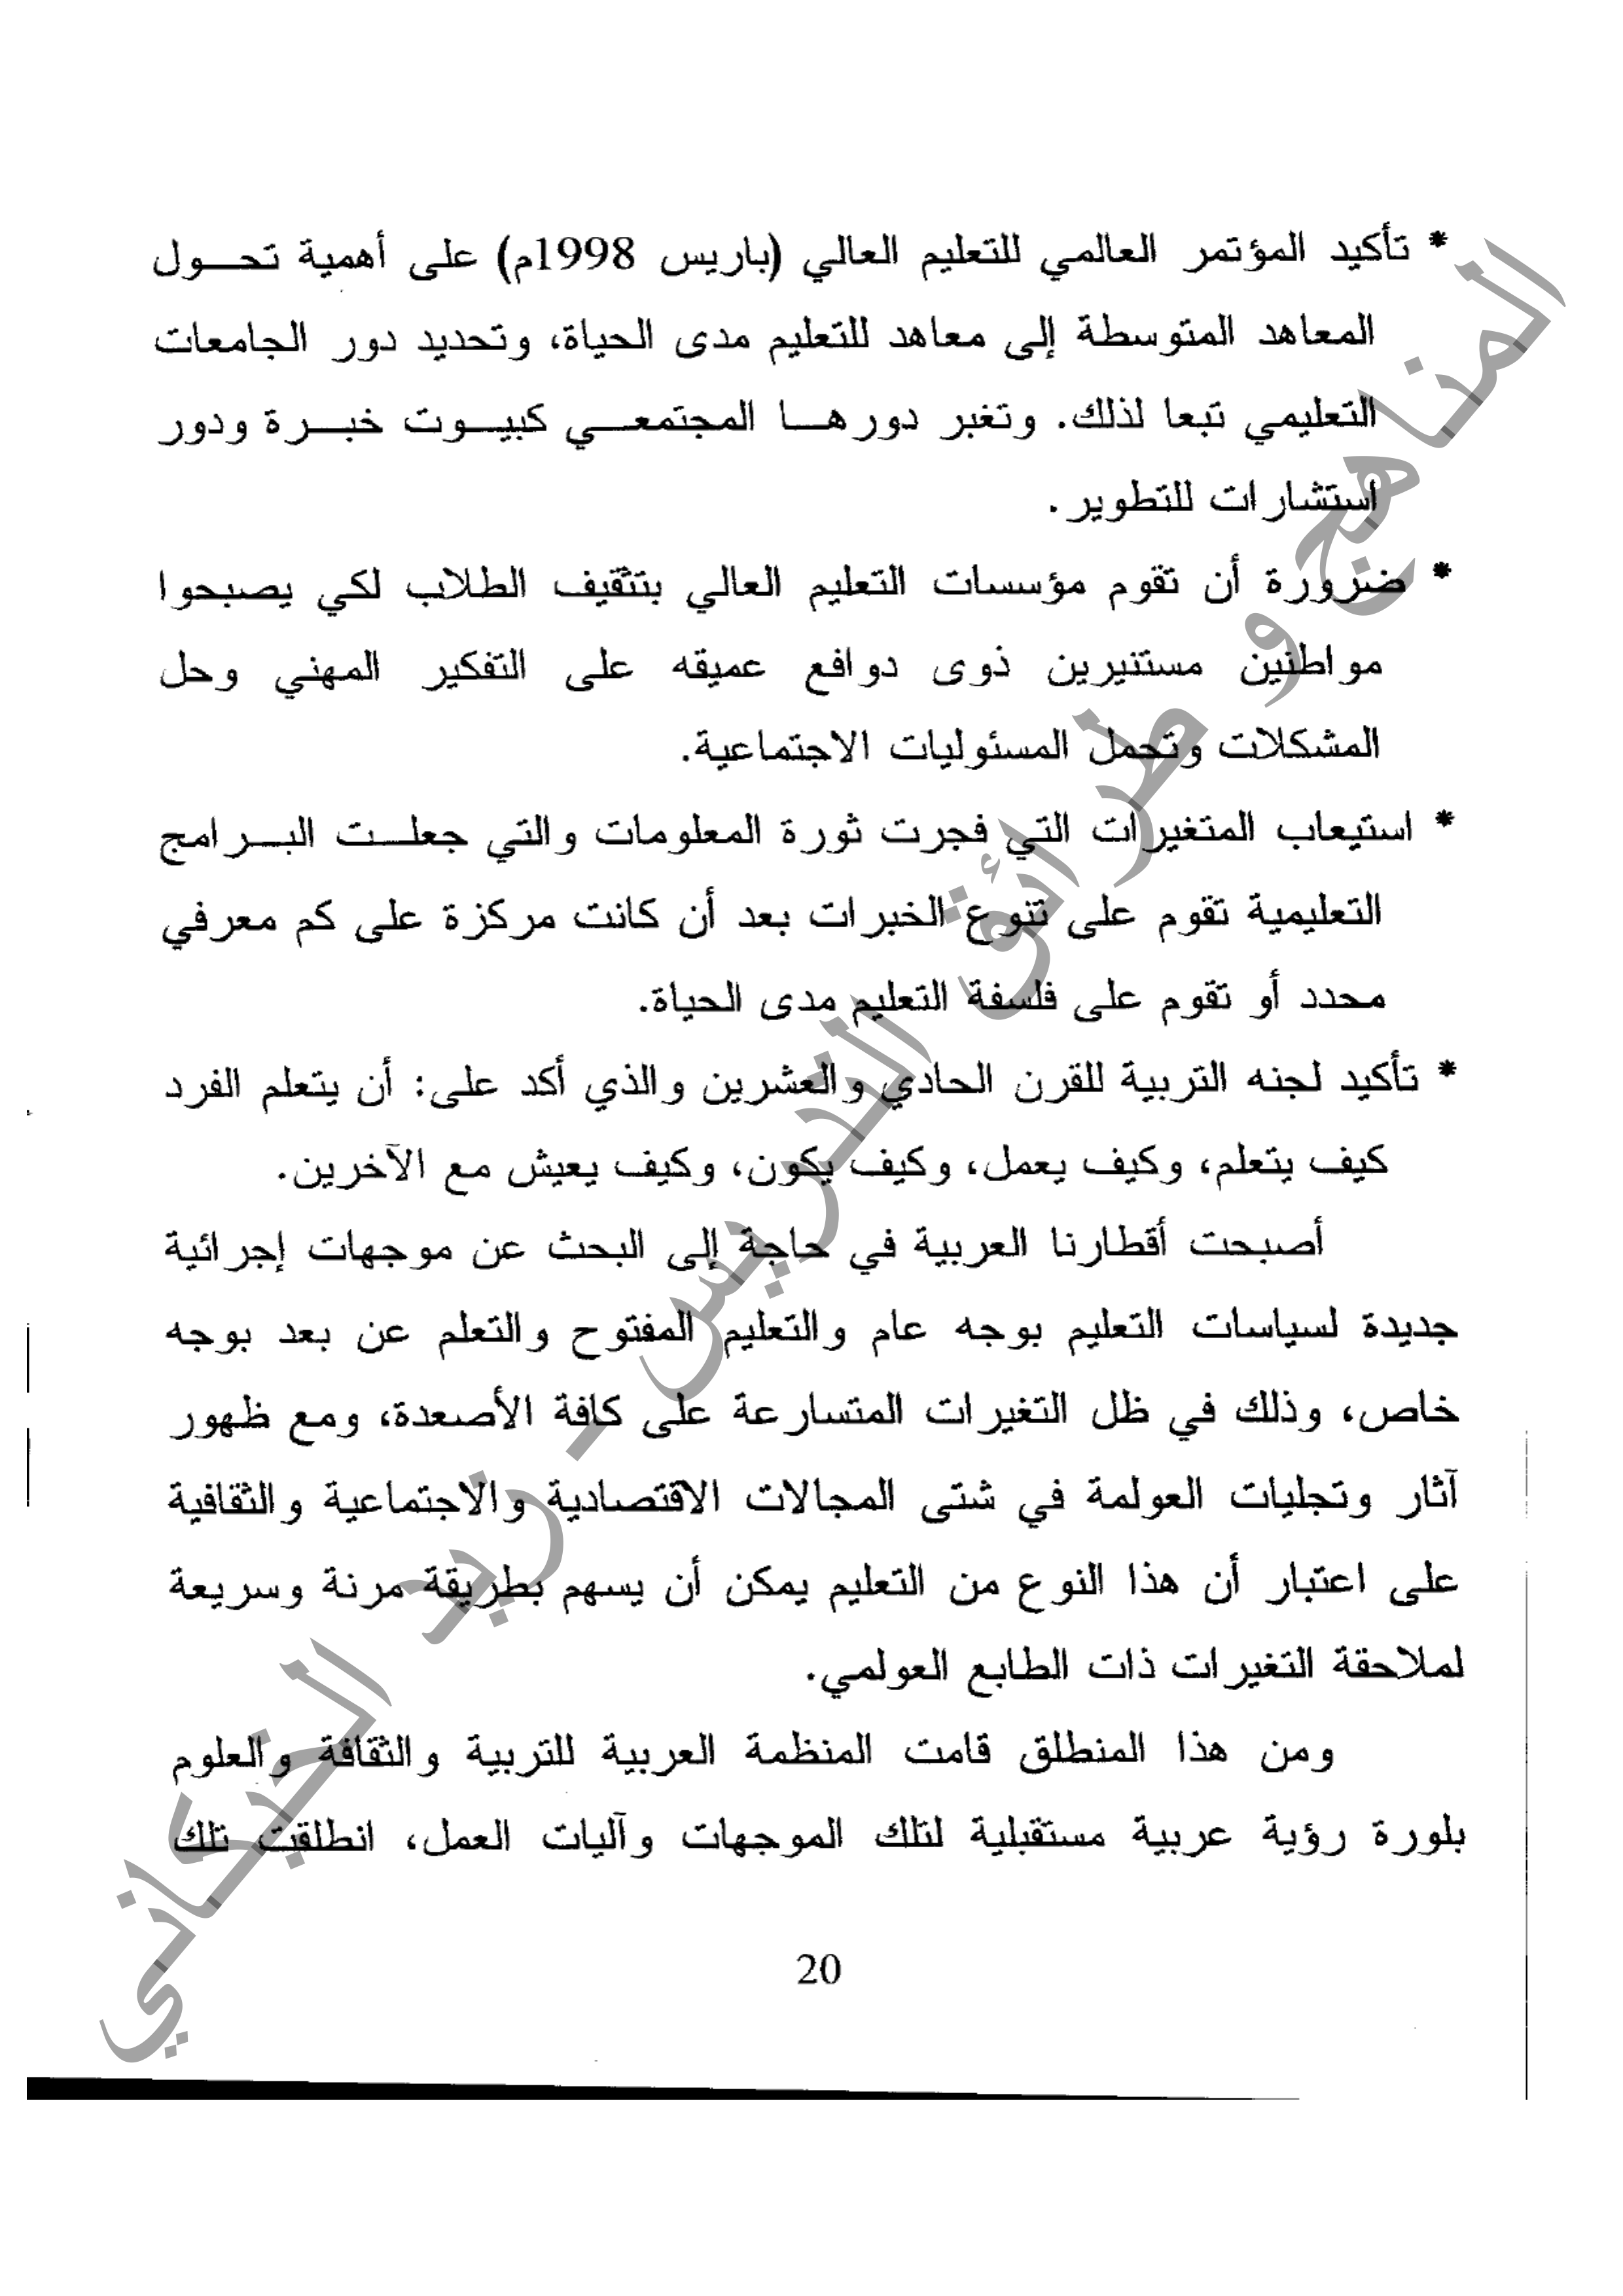 * تأكيد المؤتمر العالمي للتعليم العالي (باريس 1998م) على أهمية تحول
المعاهد المتوسطة إلى معاهد للتعليم مدى الحياة، وتحديد دور الجامعات
التعليمي تبعا لذلك. وتغبر دورها المجتمعي كبيوت خبرة ودور
استشارات للتطوير.
* ضرورة أن تقوم مؤسسات التعليم العالي بتثقيف الطلاب لكي يصبحوا
مواطنين مستنيرين ذوى دوافع عميقه على التفكير المهني وحل
المشكلات وتحمل المسئوليات الاجتماعية.
* استيعاب المتغيرات التي فجرت ثورة المعلومات والتي جعلت البرامج
التعليمية تقوم على تنوع الخبرات بعد أن كانت مركزة على كم معرفي
محدد أو تقوم على فلسفة التعليم مدى الحياة.
* تأكيد لجنه التربية للقرن الحادي والعشرين والذي أكد على: أن يتعلم الفرد
كيف يتعلم، وكيف يعمل، وكيف يكون، وكيف يعيش مع الآخرين.
أصبحت أقطارنا العربية في حاجة إلى البحث عن موجهات إجرائية
جديدة لسياسات التعليم بوجه عام والتعليم المفتوح والتعلم عن بعد بوجه
خاص، وذلك في ظل التغيرات المتسارعة على كافة الأصعدة، ومع ظهور
آثار وتجليات العولمة في شتى المجالات الاقتصادية والاجتماعية والثقافية
على اعتبار أن هذا النوع من التعليم يمكن أن يسهم بطريقة مرنة وسريعة
لملاحقة التغيرات ذات الطابع العولمي.
ومن هذا المنطلق قامت المنظمة العربية للتربية والثقافة والعلوم
بلورة رؤية عربية مستقبلية لتلك الموجهات وآليات العمل، انطلقت تلك
20
المناهج و طرائق التدريس - زيد الخيكاني